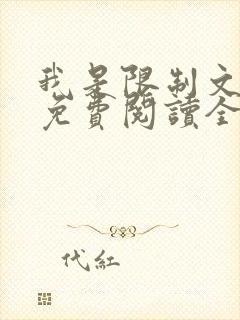 我是限制文
免費閱讀全
代紅